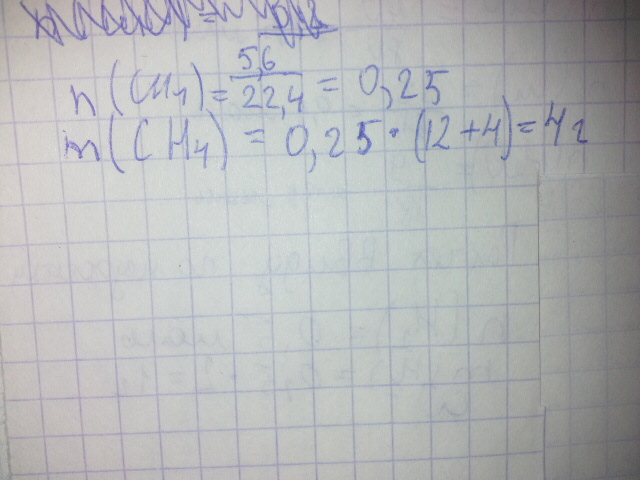 n(CH4) = 5,6 / 22,4 = 0,25
m(CH4) = 0,25 · (12+4) = 4г